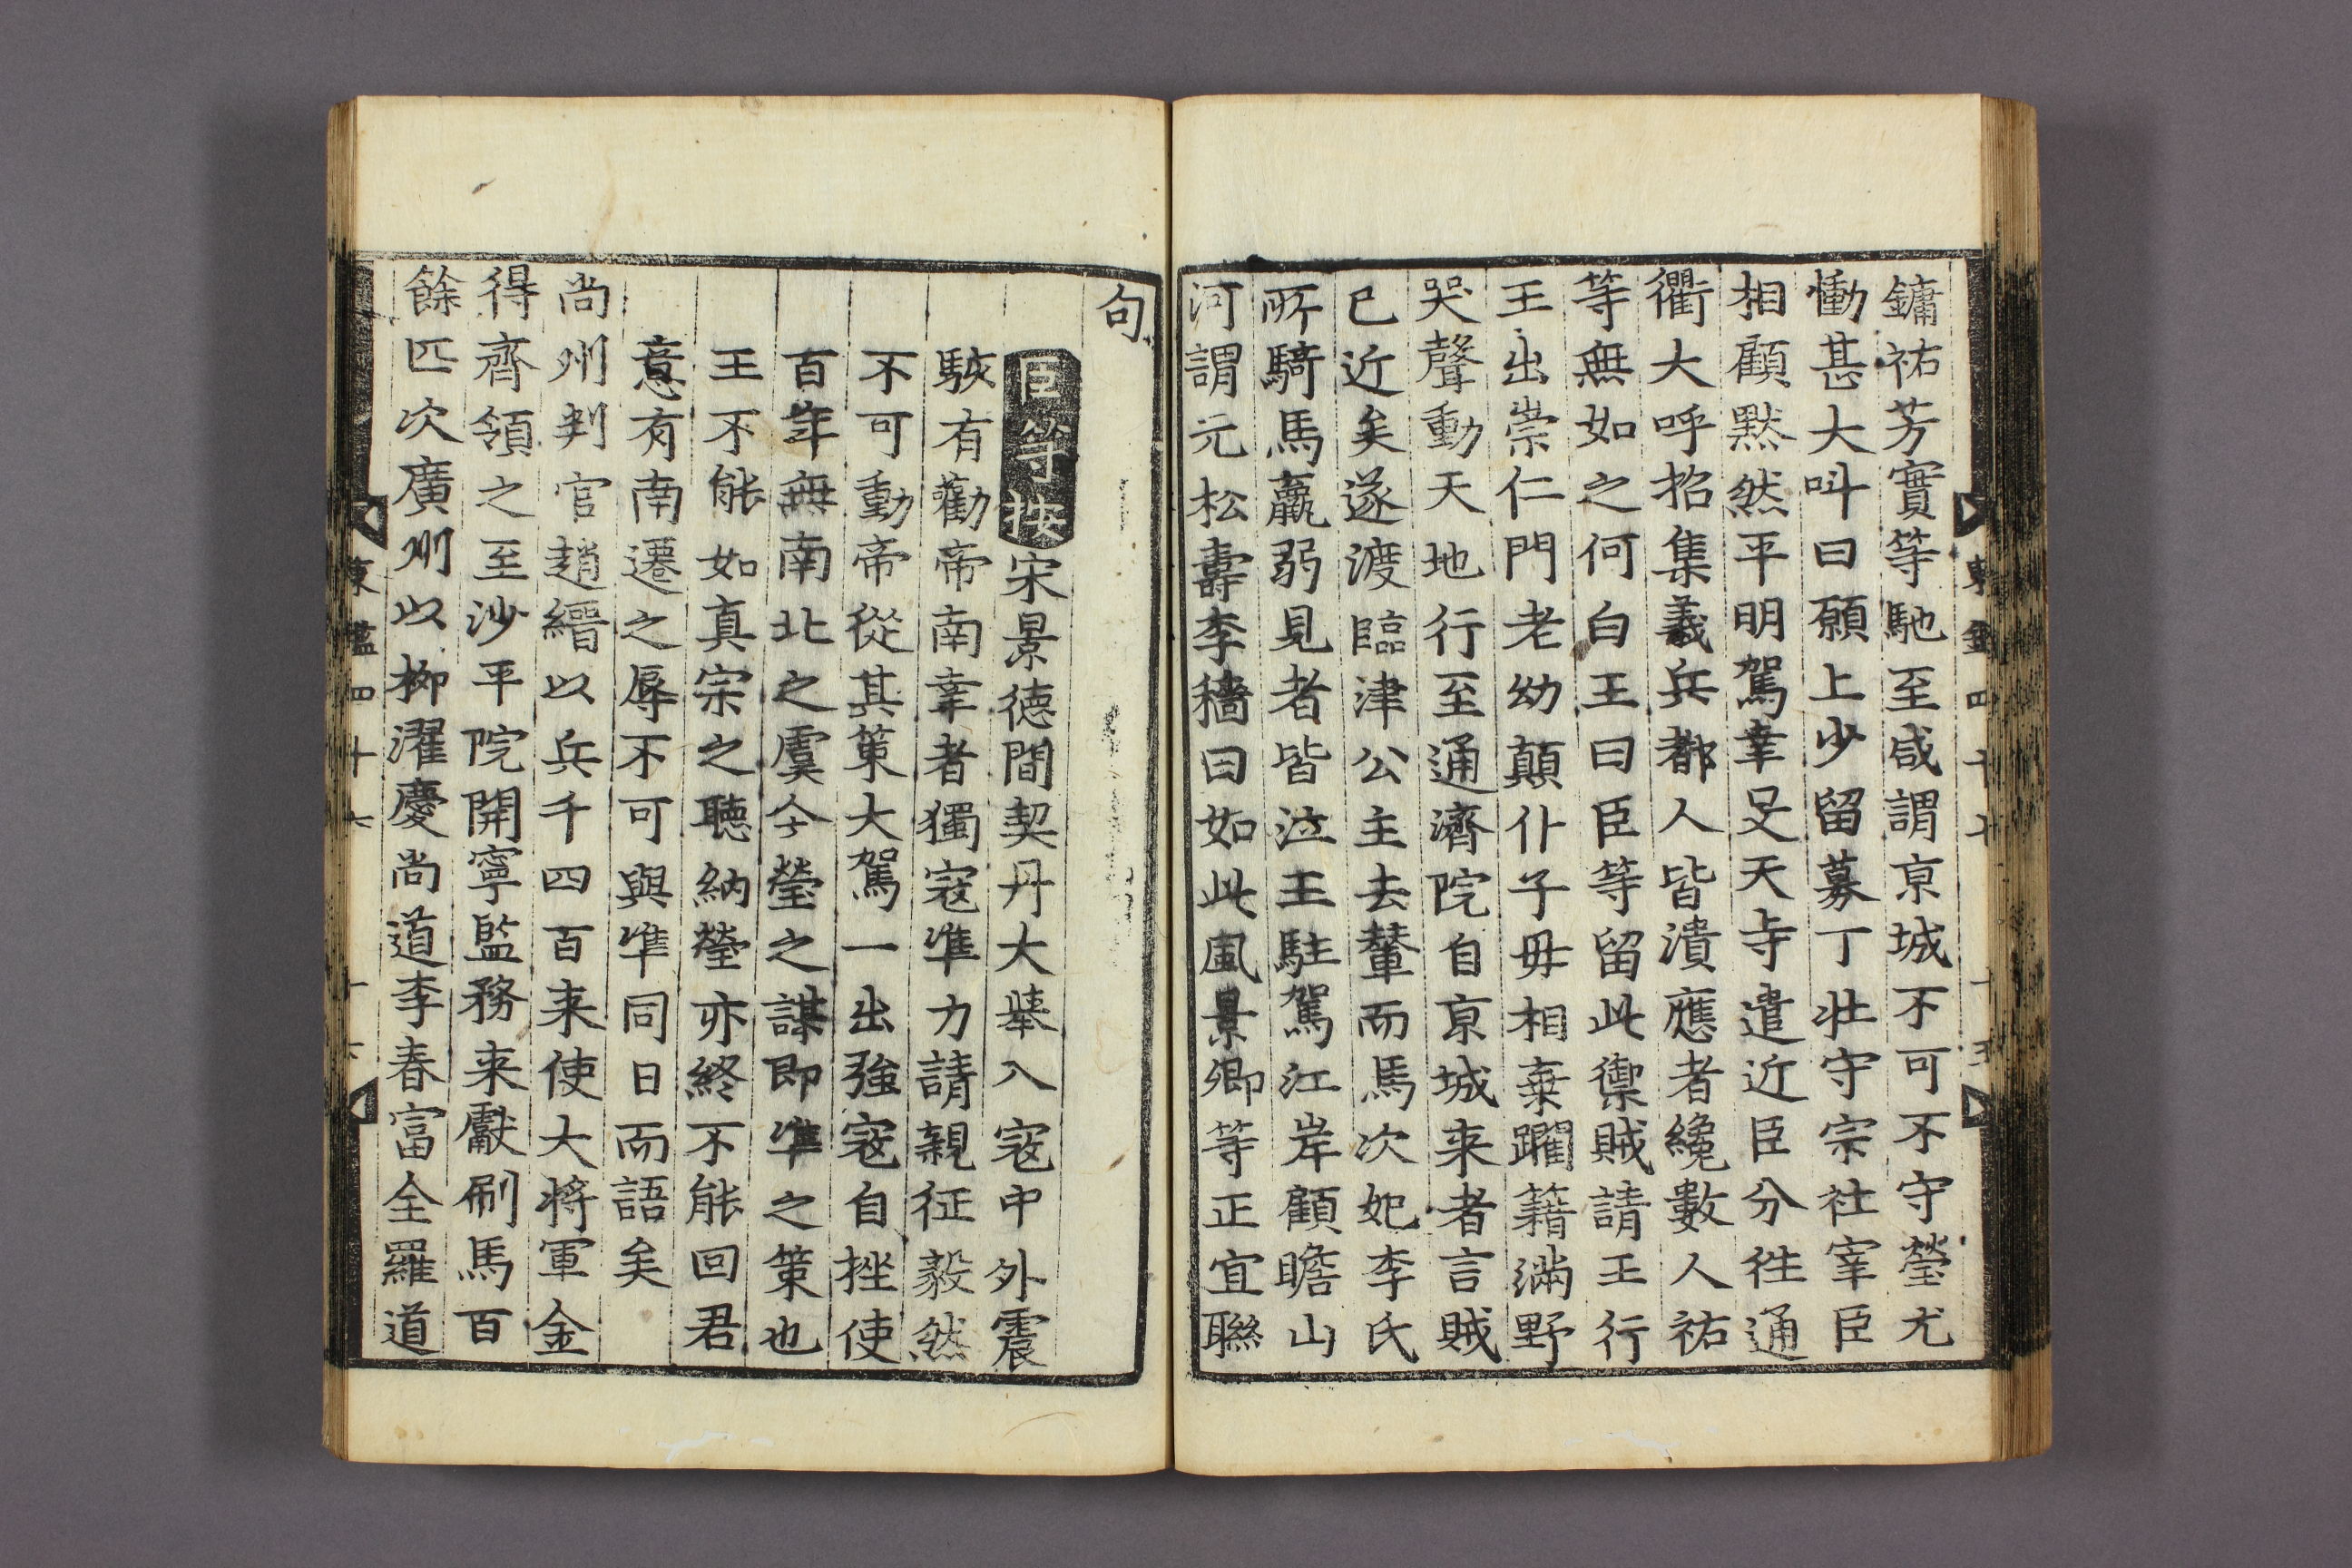 鏞祐芳實等馳至咸謂京城不可不守瑩尤
慟甚大呌曰願上少留募丁壯守宗社宰臣
相顧默然平明駕幸旻天寺遣近臣分徃通
衢大呼招集義兵都人皆潰應者纔數人祐
等無如之何白王曰臣等留此禦賊請王行
王出崇仁門老幼顛仆子母相棄躙籍滿野
哭聲動天地行至通濟院自京城来者言賊
已近矣遂渡臨津公主去輦而馬次妃李氏
所騎馬羸弱見者皆泣王駐駕江岸顧瞻山
河謂元松壽李穡曰如此風景卿等正宜聯
句
臣等按宋景德間契丹大擧入寇中外震
駭有勸帝南幸者獨寇準力請親征毅然
不可動帝從其策大駕一出強寇自挫使
百年無南北之虞今瑩之謀即準之策也
王不能如真宗之聽納瑩亦終不能回君
意有南遷之辱不可與準同日而語矣
尚州判官趙縉以兵千四百来使大將軍金
得齊領之至沙平院開寧監務来獻刷馬百
餘匹次廣州以柳濯慶尚道李春富全羅道